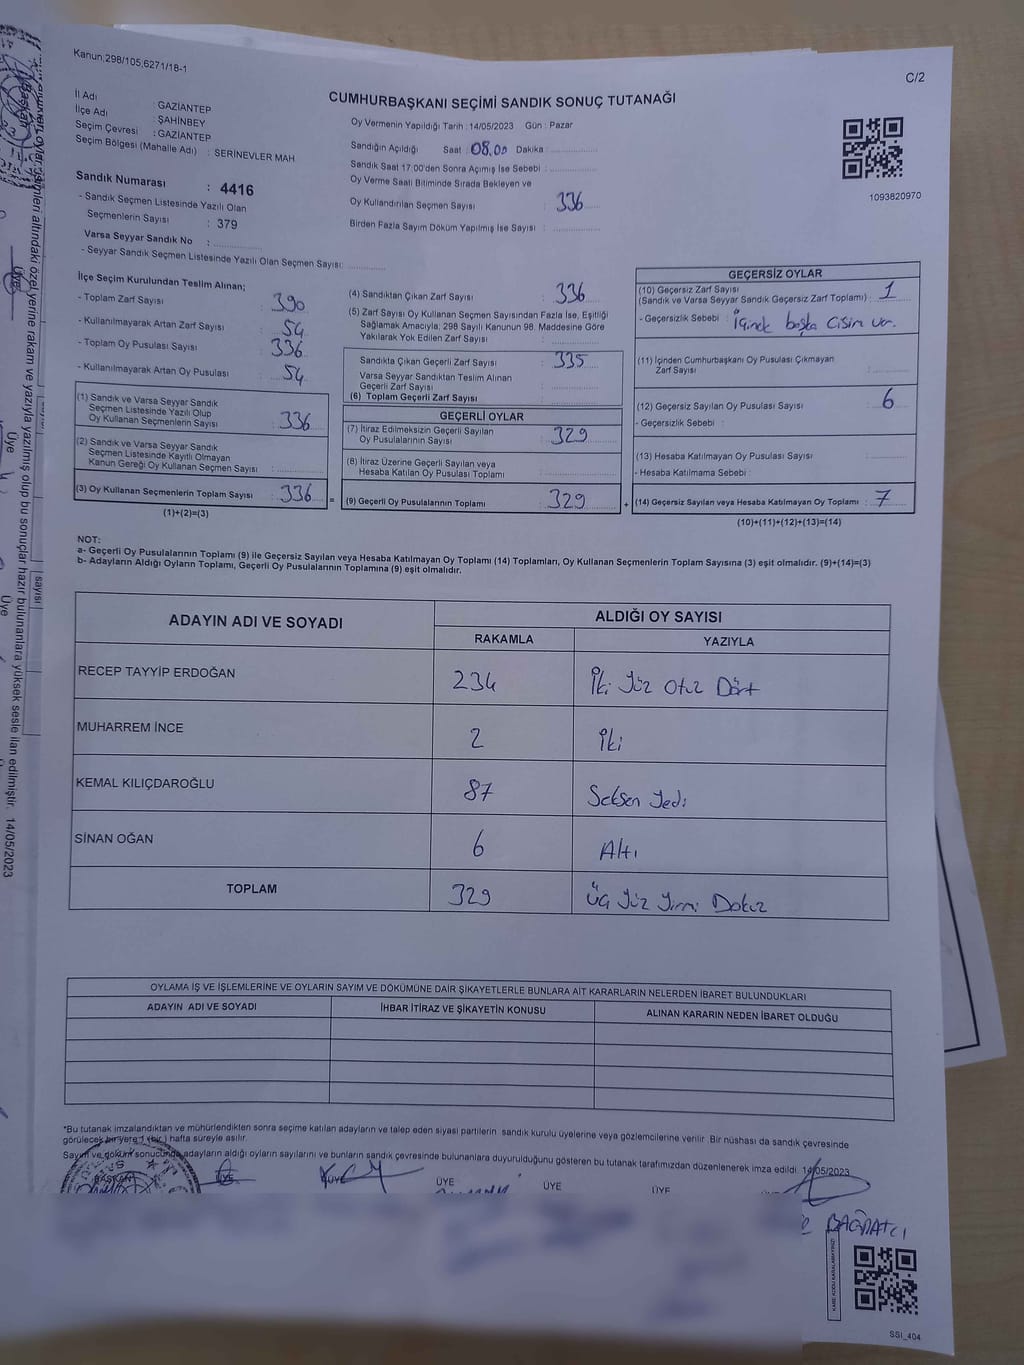 Kanun,298/105,6271/18-1
C/2
CUMHURBAŞKANI SEÇİMİ SANDIK SONUÇ TUTANAĞI
İl Adı : GAZİANTEP
İlçe Adı : ŞAHİNBEY
Seçim Çevresi : GAZİANTEP
Seçim Bölgesi (Mahalle Adı) : SERİNEVLER MAH
Sandık Numarası : 4416
- Sandık Seçmen Listesinde Yazılı Olan
Seçmenlerin Sayısı : 379
Varsa Seyyar Sandık No :
- Seyyar Sandık Seçmen Listesinde Yazılı Olan Seçmen Sayısı:
Oy Vermenin Yapıldığı Tarih : 14/05/2023 Gün : Pazar
Sandığın Açıldığı Saat : 08.00 Dakika :
Sandık Saat 17:00'den Sonra Açımış İse Sebebi :
Oy Verme Saati Bitiminde Sırada Bekleyen ve
Oy Kullandırılan Seçmen Sayısı : 336
Birden Fazla Sayım Döküm Yapılmış İse Sayısı :
1093820970
İlçe Seçim Kurulundan Teslim Alınan;
- Toplam Zarf Sayısı : 390
- Kullanılmayarak Artan Zarf Sayısı : 54
- Toplam Oy Pusulası Sayısı : 336
- Kullanılmayarak Artan Oy Pusulası : 54
(1) Sandık ve Varsa Seyyar Sandık
Seçmen Listesinde Yazılı Olup
Oy Kullanan Seçmenlerin Sayısı : 336
(2) Sandık ve Varsa Seyyar Sandık
Seçmen Listesinde Kayıtlı Olmayan
Kanun Gereği Oy Kullanan Seçmen Sayısı :
(3) Oy Kullanan Seçmenlerin Toplam Sayısı : 336
(1)+(2)=(3)
=
(4) Sandıktan Çıkan Zarf Sayısı : 336
(5) Zarf Sayısı Oy Kullanan Seçmen Sayısından Fazla İse, Eşitliği
Sağlamak Amacıyla; 298 Sayılı Kanunun 98. Maddesine Göre
Yakılarak Yok Edilen Zarf Sayısı :
Sandıkta Çıkan Geçerli Zarf Sayısı : 335
Varsa Seyyar Sandıktan Teslim Alınan
Geçerli Zarf Sayısı :
(6) Toplam Geçerli Zarf Sayısı :
GEÇERLİ OYLAR
(7) İtiraz Edilmeksizin Geçerli Sayılan
Oy Pusulalarının Sayısı : 329
(8) İtiraz Üzerine Geçerli Sayılan veya
Hesaba Katılan Oy Pusulası Toplamı :
(9) Geçerli Oy Pusulalarının Toplamı : 329
+
GEÇERSİZ OYLAR
(10) Geçersiz Zarf Sayısı
(Sandık ve Varsa Seyyar Sandık Geçersiz Zarf Toplamı) : 1
- Geçersizlik Sebebi : İçinde başka cisim var.
(11) İçinden Cumhurbaşkanı Oy Pusulası Çıkmayan
Zarf Sayısı :
(12) Geçersiz Sayılan Oy Pusulası Sayısı : 6
- Geçersizlik Sebebi :
(13) Hesaba Katılmayan Oy Pusulası Sayısı :
- Hesaba Katılmama Sebebi :
(14) Geçersiz Sayılan veya Hesaba Katılmayan Oy Toplamı : 7
(10)+(11)+(12)+(13)=(14)
NOT:
a- Geçerli Oy Pusulalarının Toplamı (9) ile Geçersiz Sayılan veya Hesaba Katılmayan Oy Toplamı (14) Toplamları, Oy Kullanan Seçmenlerin Toplam Sayısına (3) eşit olmalıdır. (9)+(14)=(3)
b- Adayların Aldığı Oyların Toplamı, Geçerli Oy Pusulalarının Toplamına (9) eşit olmalıdır.
ADAYIN ADI VE SOYADI
ALDIĞI OY SAYISI
RAKAMLA YAZIYLA
RECEP TAYYİP ERDOĞAN 234 İki Yüz Otuz Dört
MUHARREM İNCE 2 İki
KEMAL KILIÇDAROĞLU 87 Seksen Yedi
SİNAN OĞAN 6 Altı
TOPLAM 329 Üç Yüz Yirmi Dokuz
OYLAMA İŞ VE İŞLEMLERİNE VE OYLARIN SAYIM VE DÖKÜMÜNE DAİR ŞİKAYETLERLE BUNLARA AİT KARARLARIN NELERDEN İBARET BULUNDUKLARI
ADAYIN ADI VE SOYADI İHBAR İTİRAZ VE ŞİKAYETİN KONUSU ALINAN KARARIN NEDEN İBARET OLDUĞU
*Bu tutanak imzalandıktan ve mühürlendikten sonra seçime katılan adayların ve talep eden siyasi partilerin sandık kurulu üyelerine veya gözlemcilerine verilir. Bir nüshası da sandık çevresinde
görülecek bir yere 1 (bir) hafta süreyle asılır.
Sayım ve döküm sonucunda adayların aldığı oyların sayılarını ve bunların sandık çevresinde bulunanlara duyurulduğunu gösteren bu tutanak tarafımızdan düzenlenerek imza edildi. 14/05/2023
BAŞKAN ÜYE ÜYE ÜYE ÜYE ÜYE
BAĞRATCI
SSİ_404
altındaki özel yerine rakam ve yazıyla yazılmış olup bu sonuçlar hazır bulunanlara yüksek sesle ilan edilmiştir. 14/05/2023
Başkan
Üye
Üye
Üye
sayısı